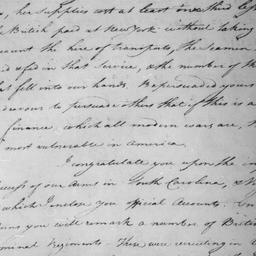 , her Supplies cost at least one third less
British paid at New York without taking
account the hire of Transports, the Seamen
used in that Service, & the number of th
fell into our hands. Be persuaded yours
endeavour to persuade others that if this is a
finance, which all modern wars are, t
most vulnerable in America.
I congratulate you upon the in
success of our Arms in South Carolina, &
which I inclose you Official Accounts. In
you will remark a number of Britis
Regiments. These were recruiting in